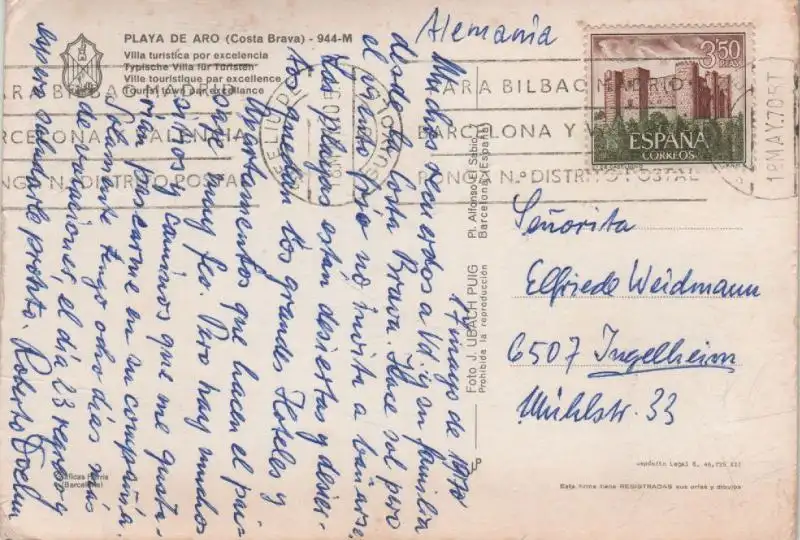 PLAYA DE ARO (Costa Brava) - 944-M
Villa turística por excelencia
Typische Villa für Turisten
Ville touristique par excellence
Tourist town par excellance
Alemania
17 mayo de 1970
Muchos recuerdos a Vd. y su familia
desde la Costa Brava. Hace sol pero
el viento frío no invita a bañarse.
Las playas están desiertas y desier-
tos quedan los grandes Hoteles y
Apartamentos que hacen el pai-
saje muy feo. Pero hay muchos
sitios y caminos que me gusta-
rían pasearme en su compañía.
Solamente tengo ocho días más
de vacaciones, el día 23 regreso y
espero saludarle pronto. Roberto
3,50
PTAS
ESPAÑA
CORREOS
PARA BILBAO MADRID
BARCELONA Y VALENCIA
PONGA N.º DISTRITO POSTAL
18 MAY 70
Señorita
Elfriede Weidmann
6507 Ingelheim
Mühlstr. 33
Foto J. UBACH PUIG
Prohibida la reproducción
Pl. Alfonso El Sabio
Barcelona (España)
(Barcelona)
Depósito Legal B.
Esta firma tiene REGISTRADAS sus orlas y dibujos